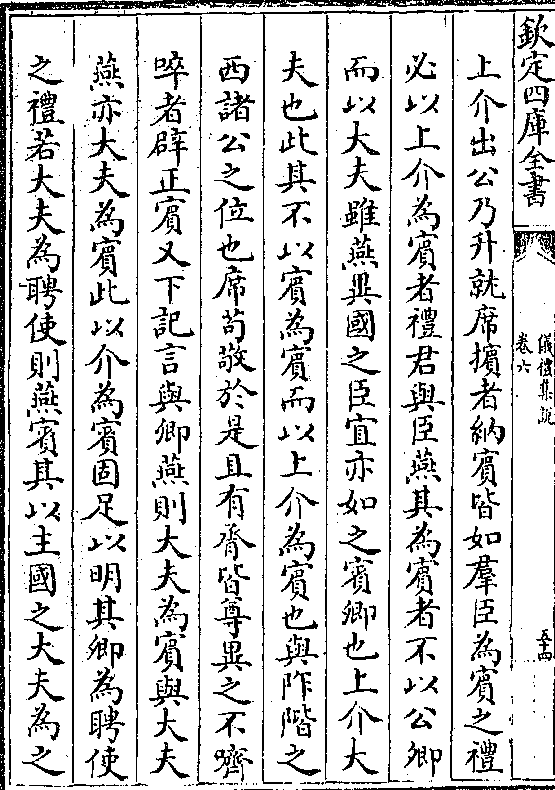 欽定四庫全書
儀禮集說
卷六
五十四
上介出公乃升就席擯者納賓皆如羣臣為賓之禮
必以上介為賓者禮君與臣燕其為賓者不以公卿
而以大夫雖燕異國之臣宜亦如之賓卿也上介大
夫也此其不以賓為賓而以上介為賓也與阼階之
西諸公之位也席苟敬於是且有脀皆尊異之不嚌
啐者辟正賓又下記言與卿燕則大夫為賓與大夫
燕亦大夫為賓此以介為賓固足以明其卿為聘使
之禮若大夫為聘使則燕賓其以主國之大夫為之